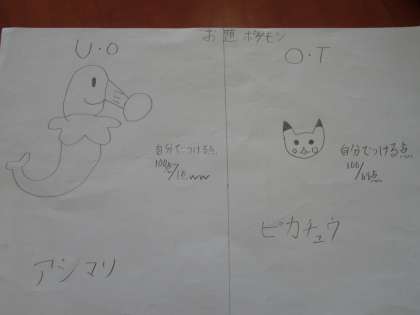 お題 ポケモン
U・O
自分でつける点
100点/1点ww
アシマリ
O・T
自分でつける点
ピカチュウ